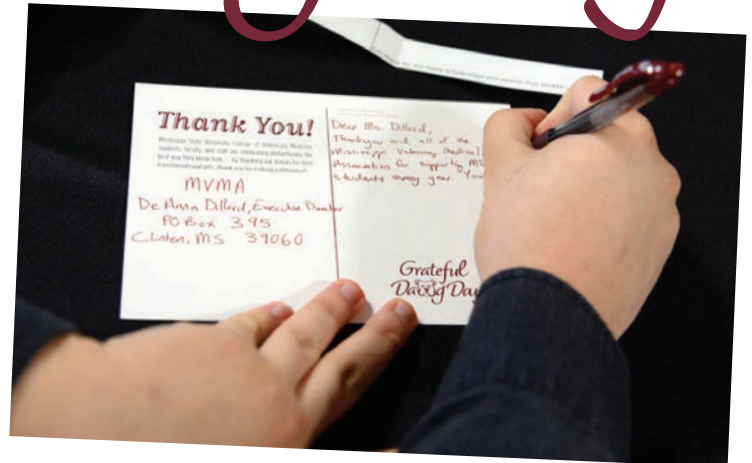 Thank You!
Mississippi State University College of Veterinary Medicine
students, faculty and staff are celebrating philanthropy the
best way they know how – by thanking our donors for their
transformational gifts. Thank you for making a difference!
MVMA
DeAnna Dillard, Executive Director
PO Box 395
Clinton, MS 39060
Dear Ms. Dillard,
Thank you and all of the
Mississippi Veterinary Medical
Association for supporting MS
students every year. You
Grateful
Dawg Day